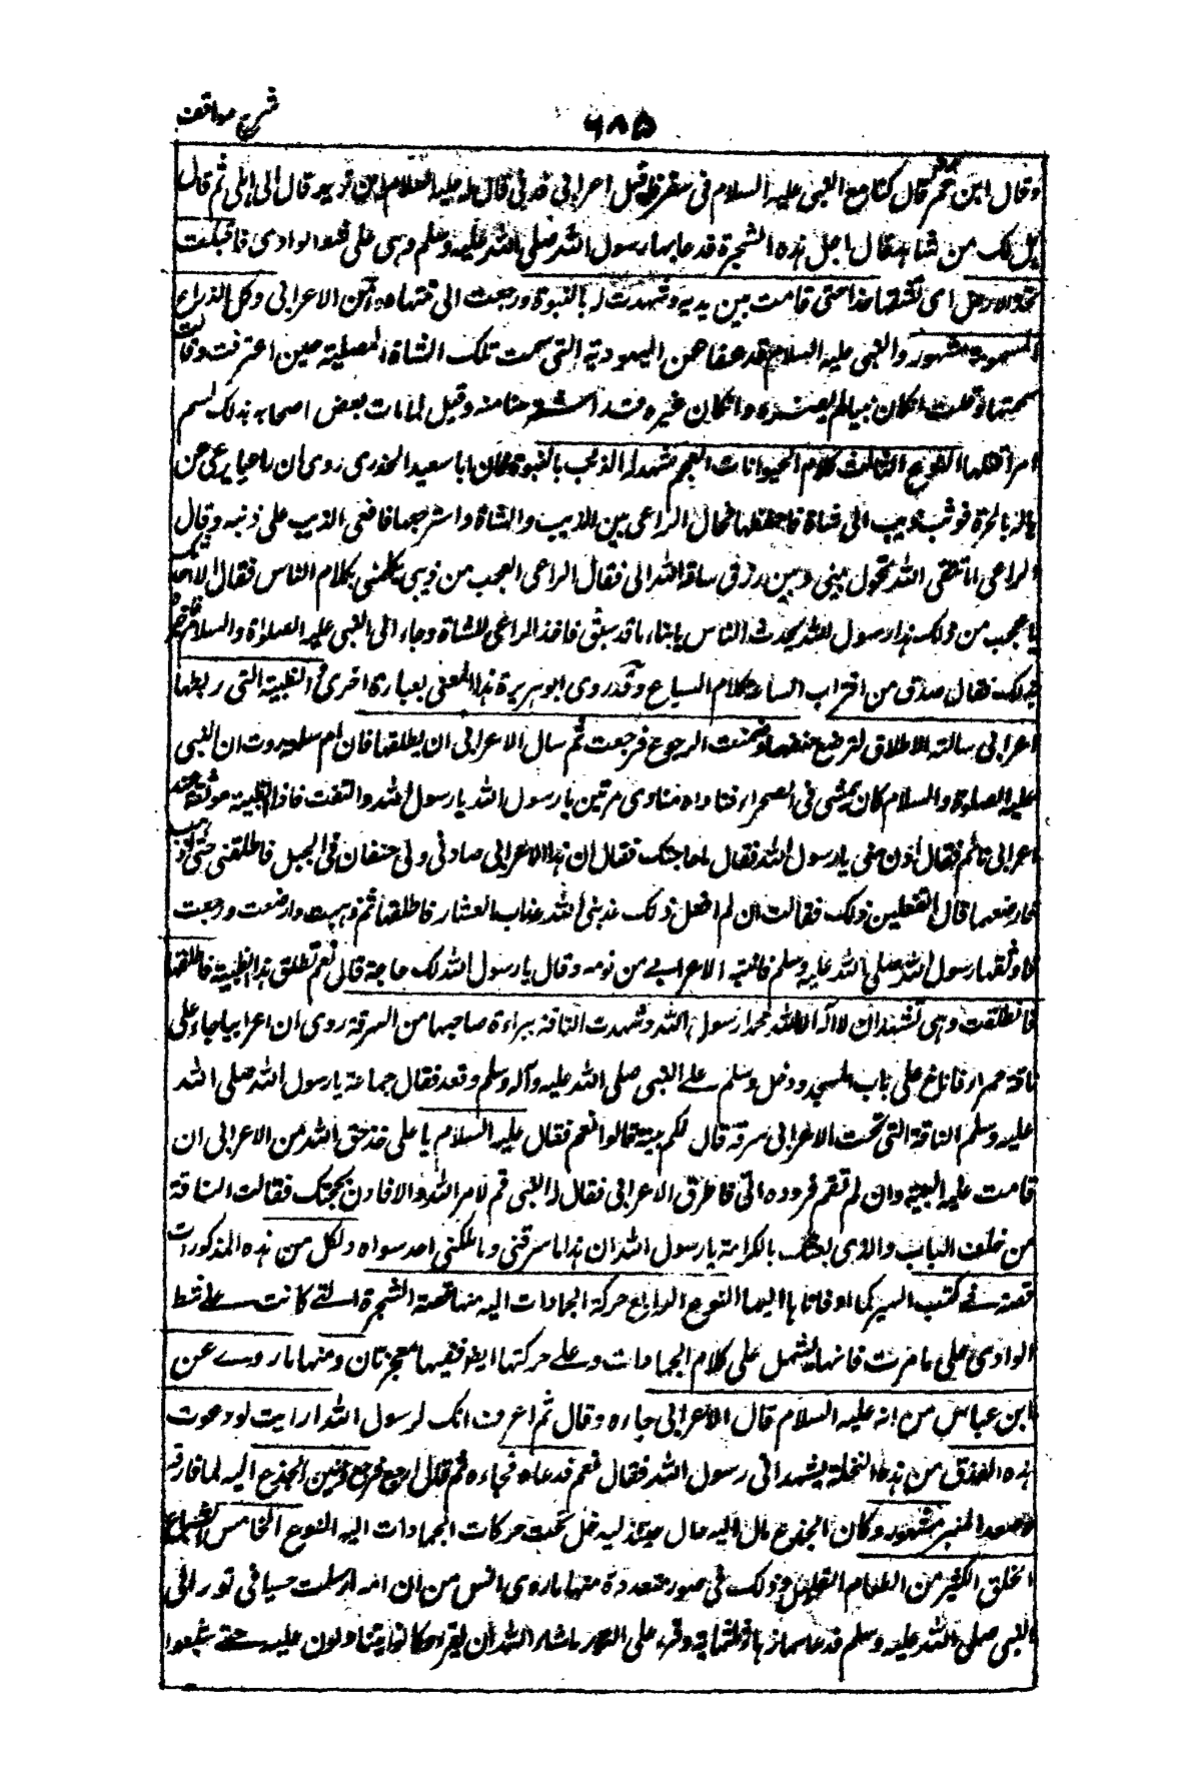 شرح مواقف
۶۸۵
وقال ابن عمر قال كنا مع النبى عليه السلام فى سفر فاقبل اعرابى فدنى قال له عليه السلام اين تريد قال الى اهلى ثم قال
هل لك من شاهد قال اجل هذه الشجرة فدعا بها رسول الله صلى الله عليه وسلم وهى على شط الوادى فاقبلت
تخد الارض اى تشقها خدا حتى قامت بين يديه وشهدت له بالنبوة ورجعت الى منبتها وآمن الاعرابى وكل الذراع
المسمومة مشهور والنبى عليه السلام قد عفا عن اليهودية التى سمت تلك الشاة المصلية حين اعترفت وقالت
سممتها وقلت ان كان نبيا لم يضره وان كان غيره فقد استرحنا منه وقيل لما مات بعض اصحابه بذلك السم
امر بقتلها النوع الثالث كلام الحيوانات العجم شهد له الذئب بالنبوة فان ابا سعيد الخدرى روى ان راعيا يرعى عن
بالحرة فوثب ذيب الى شاة فاختطفها فحال الراعى بين الذيب والشاة واسترجعها فاقعى الذيب على ذنبه وقال
الراعى اما تتقى الله تحول بينى وبين رزق ساقه الله الى فقال الراعى العجب من ذيب يكلمنى بكلام الناس فقال الا احدثك
باعجب من ذلك هذا رسول الله يحدث الناس بانباء ما قد سبق فاخذ الراعى الشاة وجاء الى النبى عليه الصلوة والسلام فاخبره
بذلك فقال صدق من اقتراب الساعة كلام السباع وقد روى ابو هريرة هذا المعنى بعبارة اخرى والظبية التى ربطها
اعرابى سالته الاطلاق لترضع خشفها وضمنت الرجوع فرجعت ثم سال الاعرابى ان يطلقها فان ام سلمة روت ان النبى
عليه الصلوة والسلام كان يمشى فى الصحراء فناداه مناد مرتين يا رسول الله يا رسول الله والتفت فاذا الظبية موثقة عند
اعرابى نائم فقال ادن منى يا رسول الله فقال ما حاجتك فقال ان هذا الاعرابى صادنى ولى خشفان فى الجبل فاطلقنى حتى اذهب
فارضعهما قال اتفعلين ذلك فقالت ان لم افعل ذلك عذبنى الله عذاب العشار فاطلقها ثم ذهبت وارضعت ورجعت
فاوثقها رسول الله صلى الله عليه وسلم فانتبه الاعرابى من نومه وقال يا رسول الله لك حاجة قال نعم تطلق هذه الظبية فاطلقها
فانطلقت وهى تشهد ان لا اله الا الله محمد رسول الله وشهدت الناقة ببراءة صاحبها من السرقة روى ان اعرابيا جاء على
ناقة حمراء فاناخ على باب المسجد ودخل وسلم على النبى صلى الله عليه وآله وسلم وقعد فقال جماعة يا رسول الله صلى الله
عليه وسلم الناقة التى تحت الاعرابى سرقة قال لكم بينة قالوا نعم فقال عليه السلام يا على خذ حق الله من الاعرابى ان
قامت عليه البينة وان لم تقم فرده الى فاطرق الاعرابى فقال له النبى قم لامر الله والا فادل بحجتك فقالت الناقة
من خلف الباب والذى بعثك بالكرامة يا رسول الله ان هذا ما سرقنى وما ملكنى احد سواه ولكل من هذه المذكورات
قصة فى كتب السير النوع الرابع حركة الجمادات اليه منها قصة الشجرة التى كانت على شط
الوادى على ما مرت فانها يشتمل على كلام الجمادات وعلى حركتها ايضا ففيها معجزتان ومنها ما روى عن
ابن عباس من انه عليه السلام قال الاعرابى جاءه وقال ثم اعرف انك لرسول الله ارايت لو دعوت
هذه العذق من هذه النخلة يشهد انى رسول الله فقال نعم فدعاه فجاءه ثم قال ارجع فرجع وحنين الجذع اليه لما فارقه
وصعد المنبر مشهور وكان الجذع مال اليه حال حنينه ليدخل تحت حركات الجمادات اليه النوع الخامس اشباع
الخلق الكثير من الطعام القليل وذلك فى صور متعددة منها ما روى انس من ان امه ارسلت حيسا فى تور الى
النبى صلى الله عليه وسلم فدعا زهاء ثلثماية وقرء على التور ما شاء الله ان يقرء وكانوا يتناولون عليه حتى شبعوا